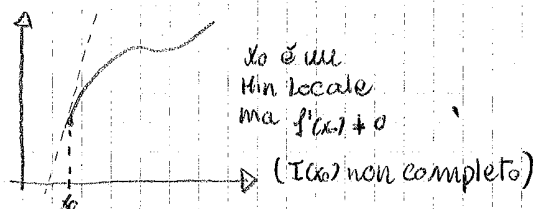 x₀ è un
Min locale
ma f'(x₀) ≠ 0
(I(x₀) non completo)
x₀